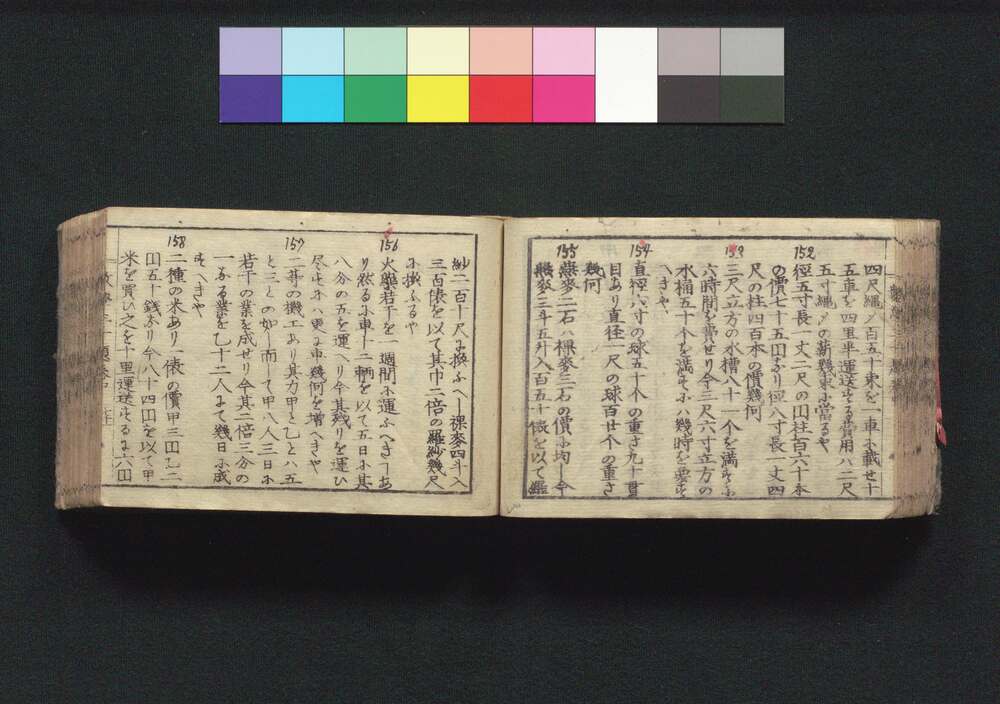 四尺繩〆百五十束を一車ニ載せ十
五車を四里半運送する費用ハ二尺
五寸繩〆の薪幾束ニ當るや
152
徑五寸長一丈二尺の円柱百六十本
の價七十五円なり徑八寸長一丈四
尺の柱四百本の價幾何
153
三尺立方の水槽八十一个を滿すニ
六時間を費せり今三尺六寸立方の
水桶五十个を滿すニハ幾時を要す
へきや
154
直徑八寸の球五十个の重さ九十貫
目あり直径一尺の球百廿个の重さ
幾何
155
糯麥二石ハ裸麥三石の價ニ均し今
糯麥三斗五升入百五十俵を以て羅
紗二百十尺に換ふへし裸麥四斗入
三百俵を以て其巾二倍の羅紗幾尺
ニ換ふるや
156
火藥若干を一週間ニ運ふへきヿあ
り然るニ車十二輌を以て五日ニ其
八分の五を運へり今其殘りを運ひ
尽すニハ更に車幾何を増へきや
157
二哥の機工あり其力甲と乙とハ五
と三との如し而して甲八人三日ニ
若干の業を成せり今其二倍三分の
一なる業を乙十二人にて幾日ニ成
すへきや
158
二種の米あり一俵の價甲三円乙二
円五十錢なり今八十四円を以て甲
米を買ひ之を十里運送するに六円